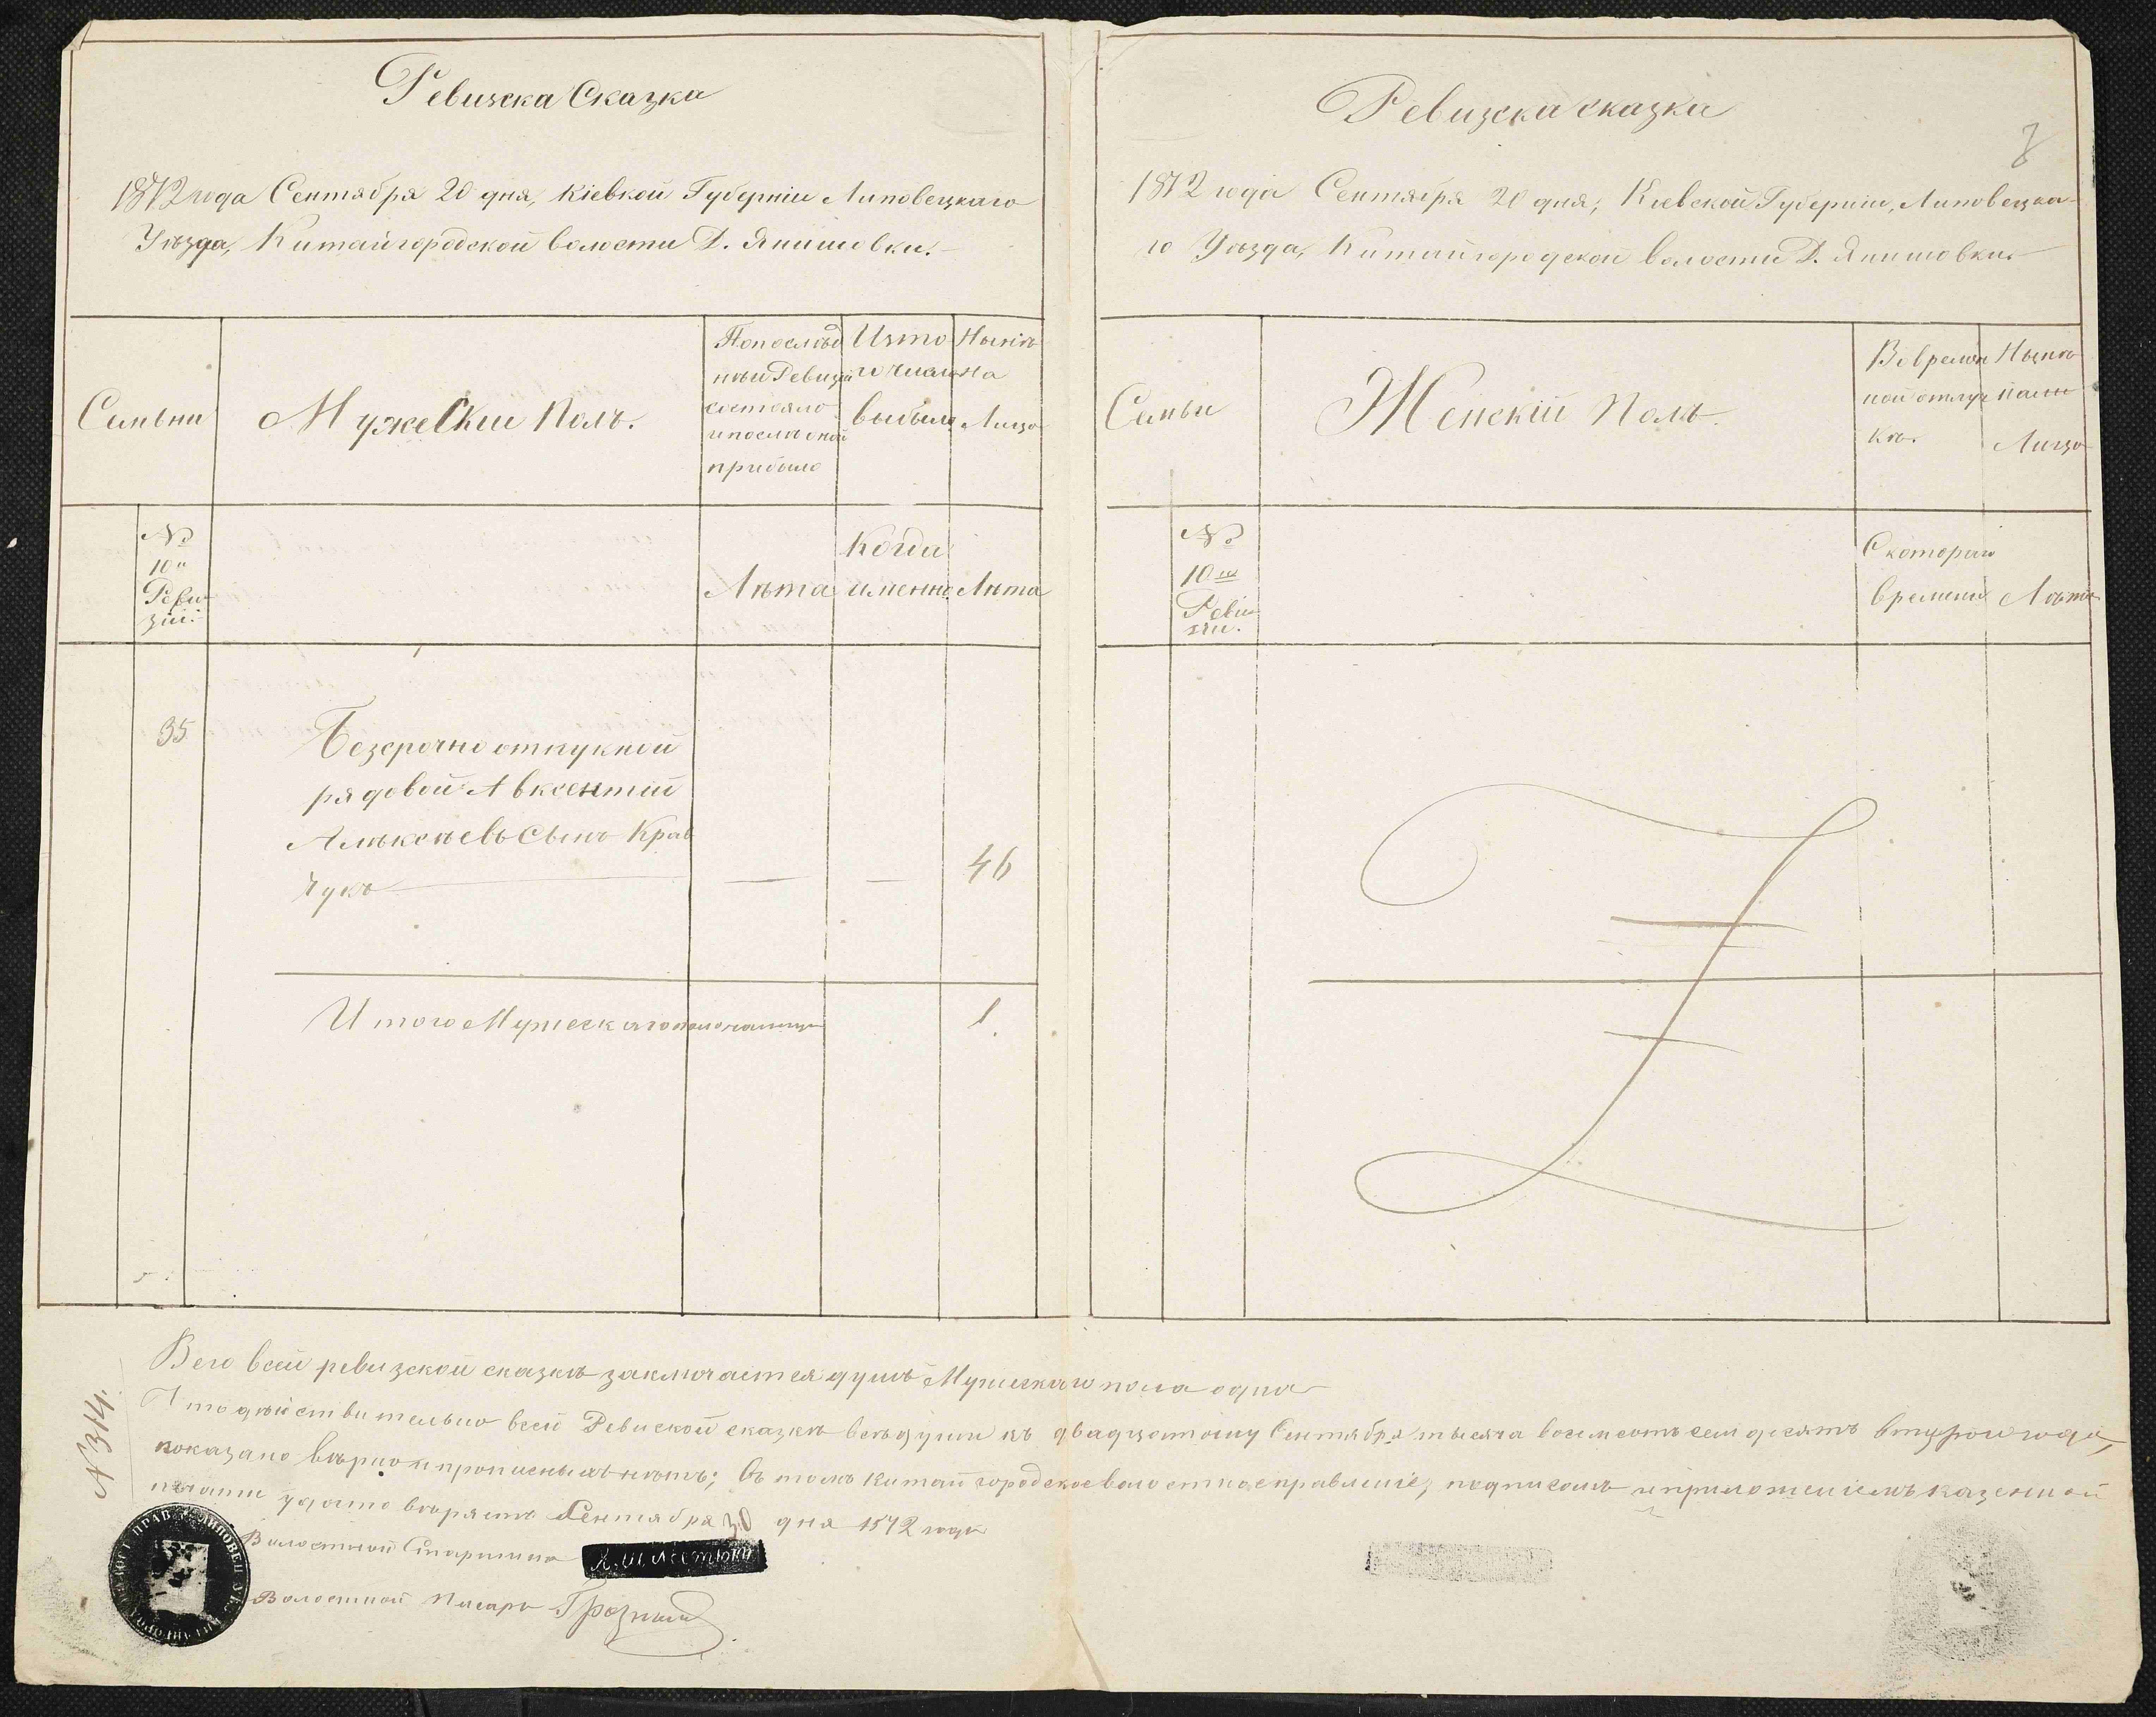 Ревизска Сказка
1872 года Сентября 20 дня, Кіевкой Губерніи Липовецкаго
Уѣзда, Китайгородской волости Д. Янишовки.
Семьи
Мужескии Полъ.
Попослѣд
нѣи Ревизіи
состояло
и послѣ оной
прибыло
Изто
го числа
выбыло
Нынѣ
на
Лицо
№
10й
Реви
зіи.
Лѣта
Когда
именно
Лѣта
35
Безсрочно отпукной
рядовой Авксентий
Алѣксѣевъ Сынъ Крав
чукъ
46
Итого Мужескаго пола налицо
1.
Ревизска сказка
8
1872 года Сентября 20 дня; Киевской Губернии, Липовецка-
го Уѣзда, Китайгородской волости Д. Янишовки
Семьи
Женскій Полъ.
Вовремѣн
ной отлуч
кѣ.
Нынѣ
нали
Лицо
№
10й
Реви
зіи.
Скотораго
времени
Лѣта
Всего всей ревизской сказкѣ заключается душъ Мужскаго пола одна
Что дѣйствительно всей Ревиской сказкѣ всѣ души къ двадцатому Сентября тысяча восемсотъ семдесятъ втораго года,
показано вѣрно и прописныхъ нѣтъ; въ томъ Китайгородское волостное правленіе, подписомъ и приложеніемъ казенной
печати удостовѣряетъ Сентября 30 дня 1872 года
№ 314.
Волостной Старшина
Волостной Писарь Грозный